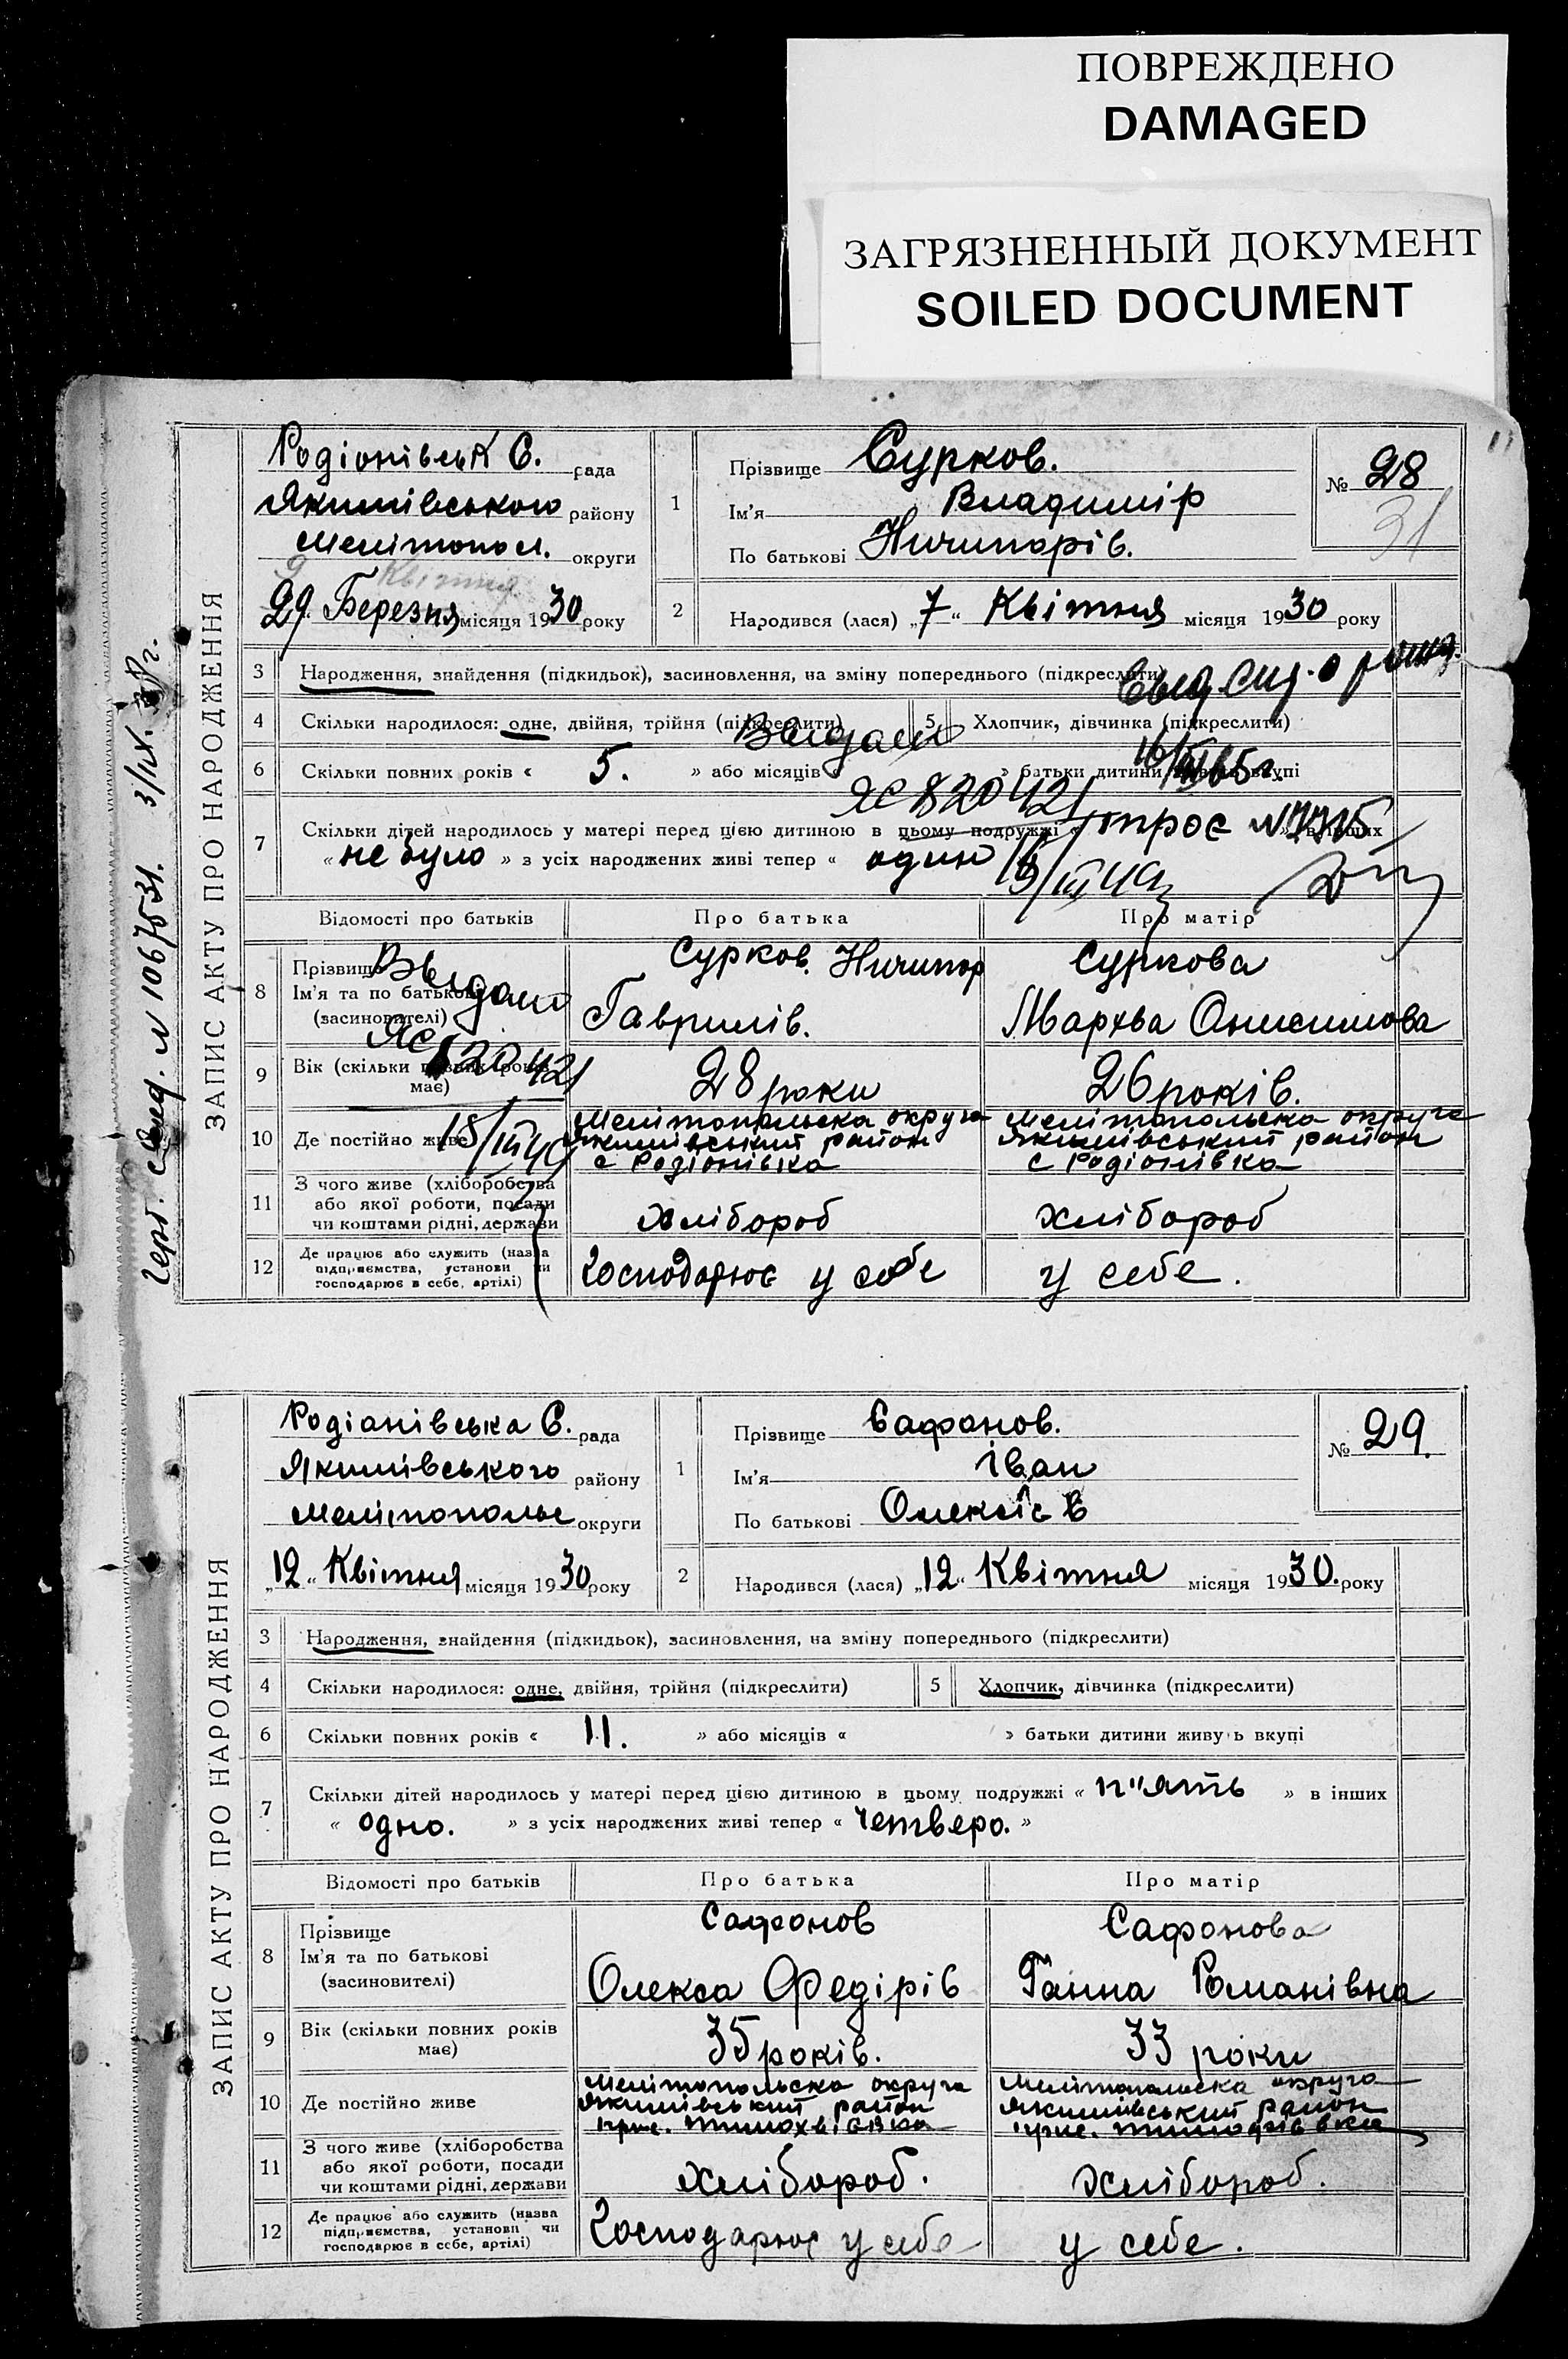 ПОВРЕЖДЕНО
DAMAGED
ЗАГРЯЗНЕННЫЙ ДОКУМЕНТ
SOILED DOCUMENT
ЗАПИС АКТУ ПРО НАРОДЖЕННЯ
Родіонівськ С. рада
Якимівського району
Мелітопол. округи
9 Квітня
29 Березня місяця 1930 року
1 Прізвище Сурков.
Ім'я Владимір
По батькові Ничипорів.
№ 28
31
2 Народився (лася) „7“ Квітня місяця 1930 року
3 Народження, знайдення (підкидьок), засиновлення, на зміну попереднього (підкреслити)
4 Скільки народилося: одне, двійня, трійня (підкреслити) 5 Хлопчик, дівчинка (підкреслити)
Выдано
6 Скільки повних років « 5. » або місяців « » батьки дитини вкупі
ЯС 820421
7 Скільки дітей народилось у матері перед цією дитиною в цьому подружжі « троє » в інших
« не було » з усіх народжених живі тепер « один
Відомості про батьків Про батька Про матір
8 Прізвище
Ім'я та по батькові
(засиновителі)
Сурков. Ничипор
Гаврилів.
Суркова
Мархва Онисимова
Выдано
ЯС 820421
9 Вік (скільки повних років має) 28 роки 26 років.
10 Де постійно живе
Мелітопольска округа
Якимівський район
с Родіонівка
Мелітопольска округа
Якимівський район
с Родіонівка
11 З чого живе (хліборобства
або якої роботи, посади
чи коштами рідні, держави
хлібороб хлібороб
12 Де працює або служить (назва
підприємства, установи чи
господарює в себе, артілі)
Господарює у себе у себе.
ЗАПИС АКТУ ПРО НАРОДЖЕННЯ
Родіанівська С. рада
Якимівського району
Мелітопольс округи
„12“ Квітня місяця 1930 року
1 Прізвище Сафонов.
Ім'я Іван
По батькові Олексіє в
№ 29.
2 Народився (лася) „12“ Квітня місяця 1930. року
3 Народження, знайдення (підкидьок), засиновлення, на зміну попереднього (підкреслити)
4 Скільки народилося: одне, двійня, трійня (підкреслити) 5 Хлопчик, дівчинка (підкреслити)
6 Скільки повних років « 11. » або місяців « » батьки дитини живуть вкупі
7 Скільки дітей народилось у матері перед цією дитиною в цьому подружжі « п"ять » в інших
« одно. » з усіх народжених живі тепер « четверо. »
Відомості про батьків Про батька Про матір
8 Прізвище
Ім'я та по батькові
(засиновителі)
Сафонов
Олекса Федірів
Сафонова
Ганна Романівна
9 Вік (скільки повних років має) 35 років. 33 роки
10 Де постійно живе
Мелітопольска округа
Якимівський район
Мелітопольска округа
Якимівський район
11 З чого живе (хліборобства
або якої роботи, посади
чи коштами рідні, держави
хлібороб. хлібороб.
12 Де працює або служить (назва
підприємства, установи чи
господарює в себе, артілі)
Господарює у себе у себе.